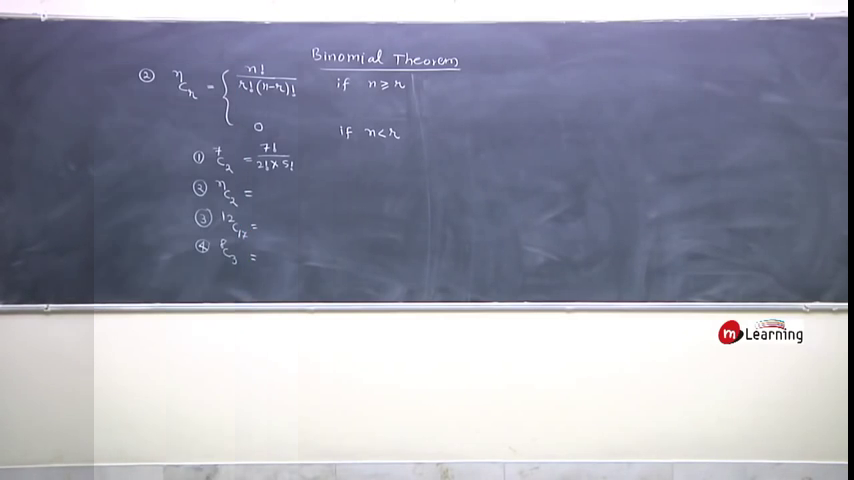 Binomial Theorem
② ⁿCᵣ = { n! / r!(n-r)! if n ≥ r
0 if n < r
① ⁷C₂ = 7! / 2! × 5!
② ⁿC₂ =
③ ¹²C₁₇ =
④ ⁸C₃ =
m Learning